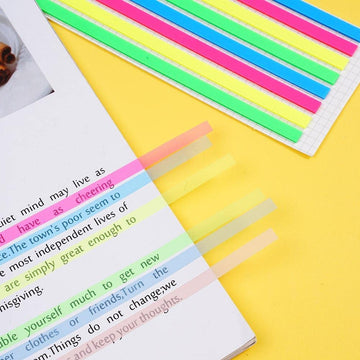 uiet mind may live as
d have as cheering
ce.The town's poor seem to
e most independent lives of
are simply great enough to
nisgiving.
ble yourself much to get new
clothes or friends,Turn the
m.Things do not change;we
and keep your thoughts.